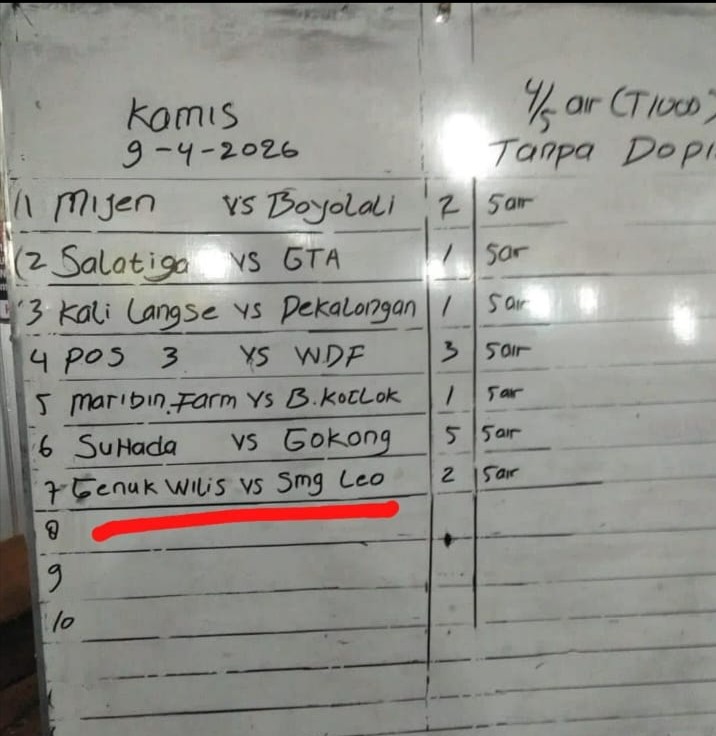 Kamis
9-4-2026
4/5 air (T1000)
Tanpa Dopi
1 Mijen vs Boyolali 2 5air
2 Salatiga vs GTA 1 5air
3 Kali Langse vs Pekalongan 1 5air
4 POS 3 vs WDF 3 5air
5 Maribin.Farm vs B.Kotlok 1 5air
6 SuHada vs Gokong 5 5air
7 Genuk Wilis vs Smg Leo 2 5air
8
9
10